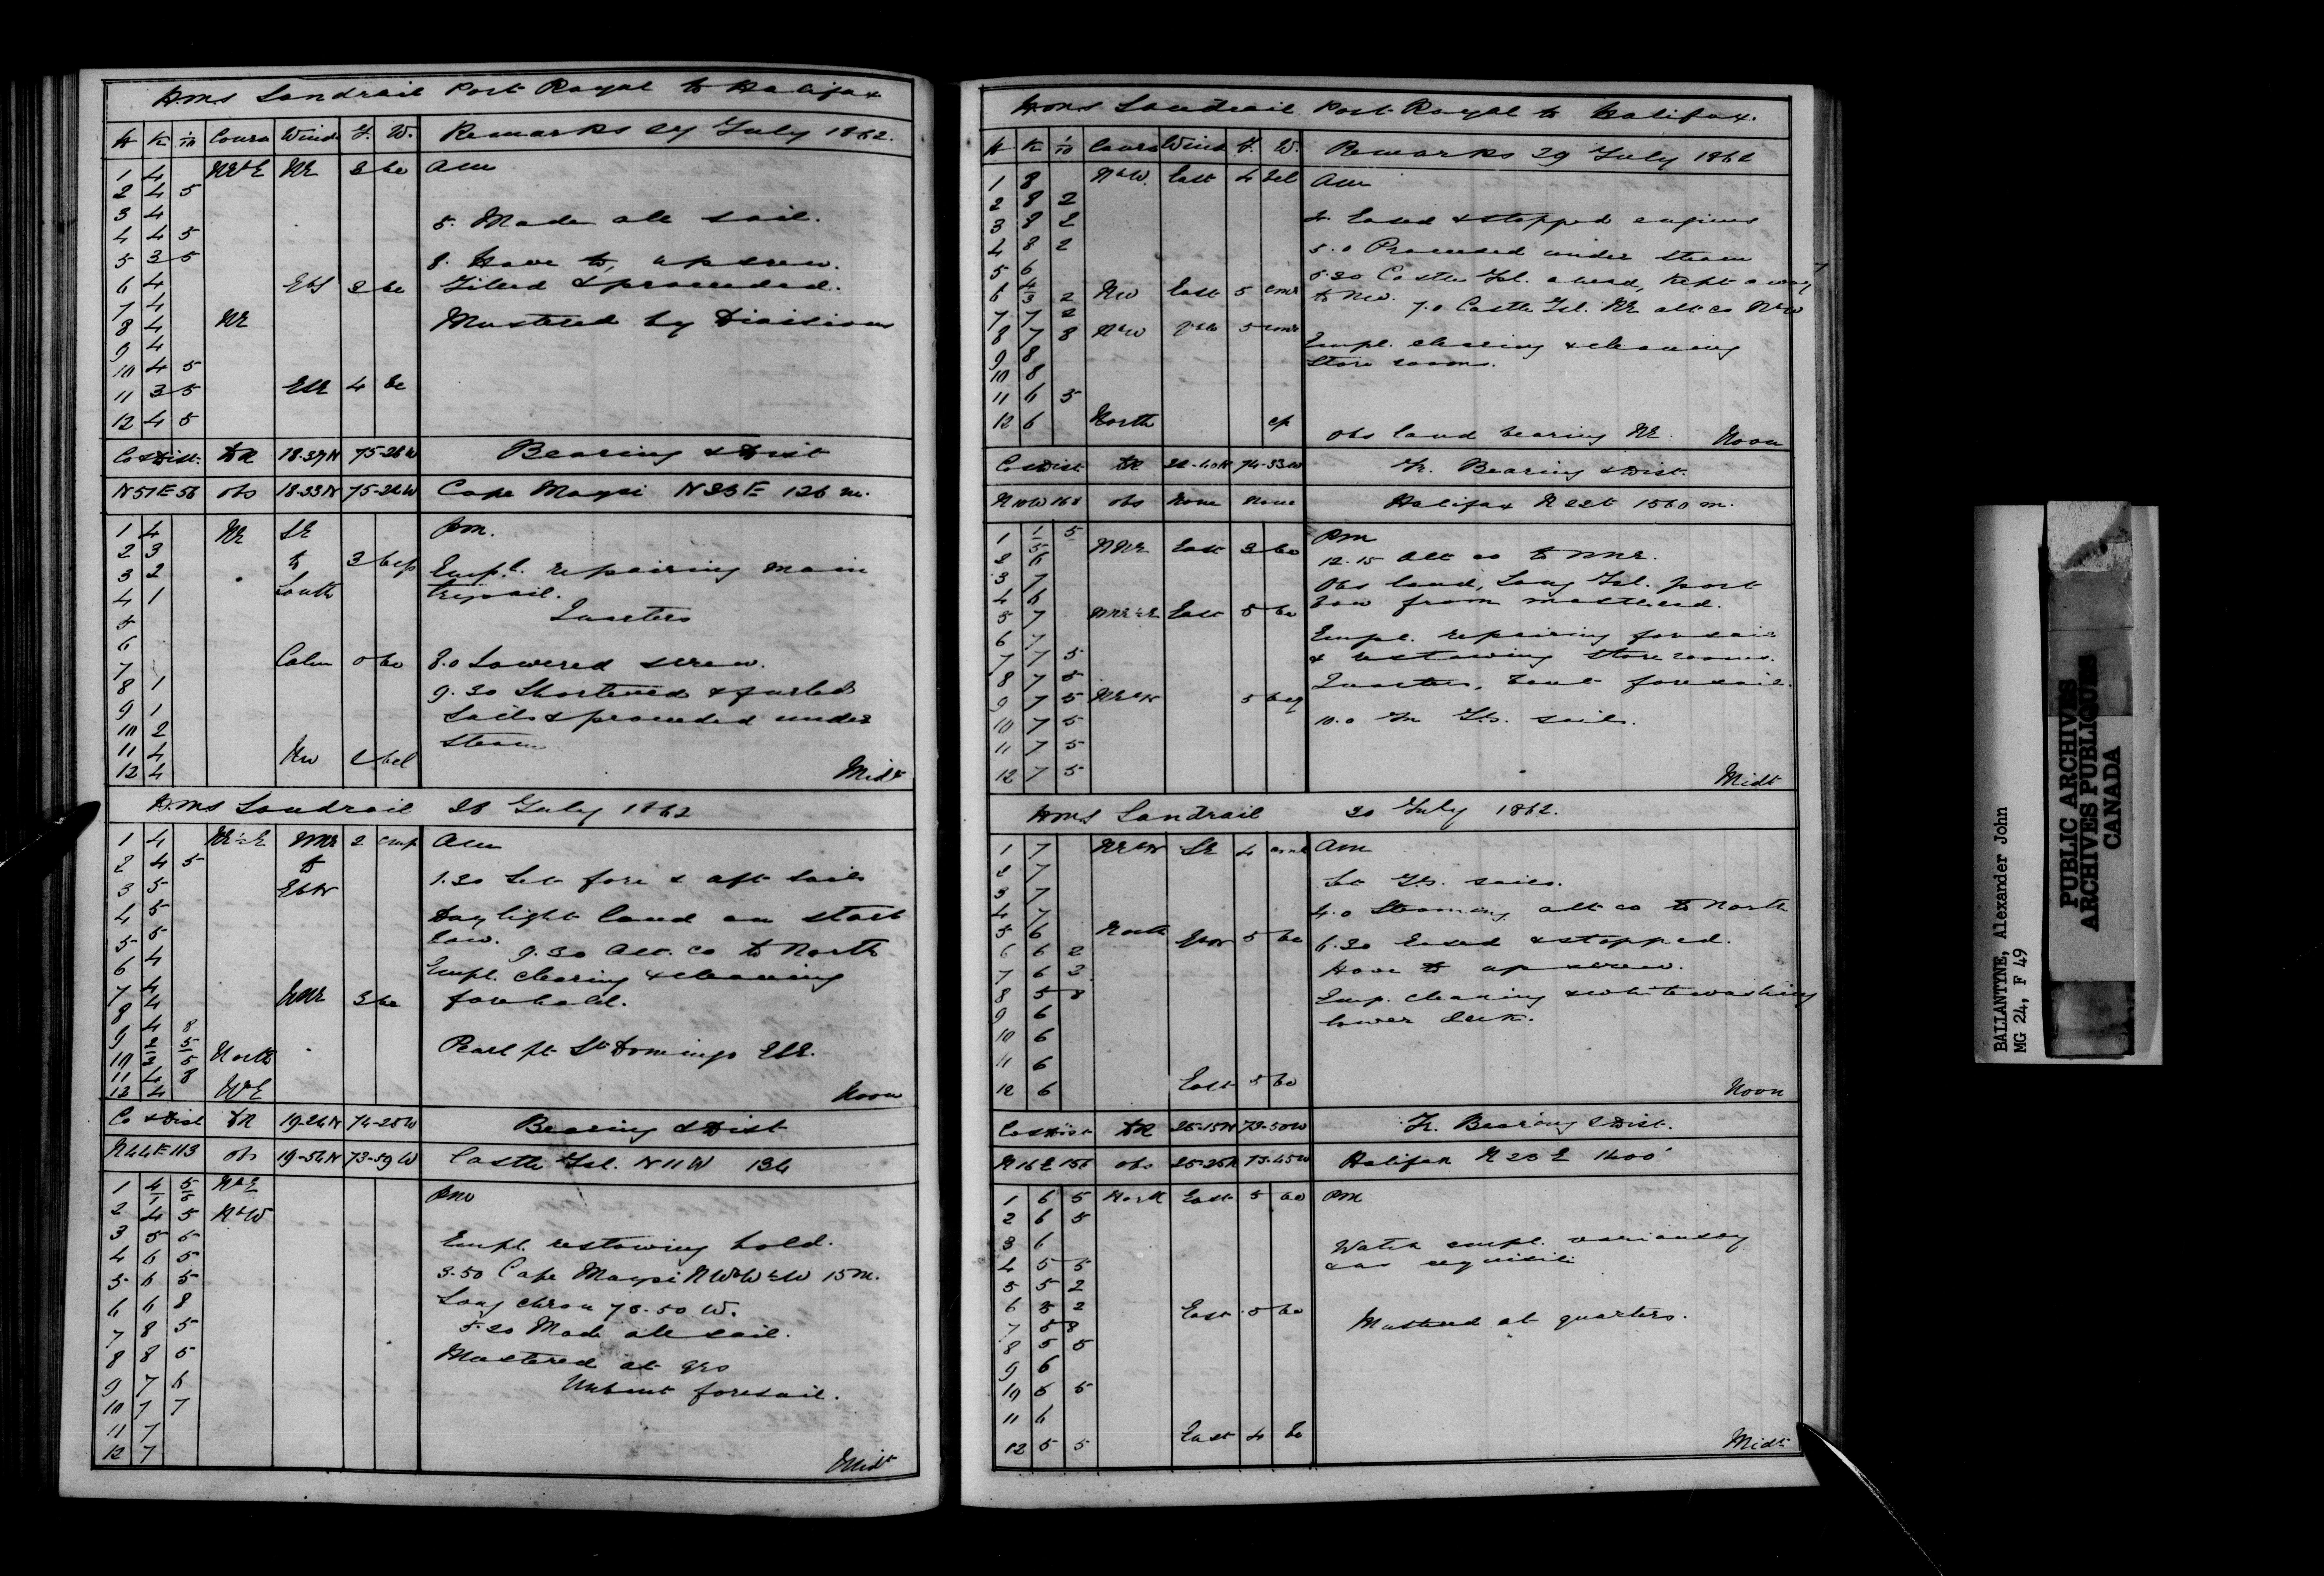 HMS Landrail Port Royal to Halifax
H K 1/10 Course Wind F. W. Remarks 27 July 1862.
1 4 NE NE 2 bc Am
2 4 5
3 4 5. Made all sail.
4 4 5
5 3 5 8. Hove to, up screw.
6 4 EbS 2 bc Filled & proceeded.
7 4
8 4 NE Mustered by Divisions
9 4
10 4 5
11 3 5 4 bc
12 4 5
Co & Dist. DR 18-37N 75-28W Bearing & Dist
N51E 56 obs 18-33N Cape Maysi N33E 126 m.
1 4 NE SE PM.
2 3 to 3 bcp
3 2 Empl. repairing main
4 1 South trysail.
5 Quarters
6
7 Calm 0 bc 8.0 Lowered screw.
8 1 9.30 Shortened & furled
9 1 Sails & proceeded under
10 2 steam
11 4 NW 2 bcl
12 4 Midt
HMS Landrail 28 July 1862
1 4 NE½E NNE 2 cmp Am
2 4 5 to
3 5 EbN 1.30 Set fore & aft sails
4 5 Daylight land on starb
5 5 bow. 9.30 Alt. co to North
6 4 Empl. clearing & cleaning
7 4
8 4 3 bc forehold.
9 4 8
10 North Pearl pt St Domingo
11 4 8
12 4 NbE Noon
Co & Dist DR 19-26N 74-25W Bearing & Dist
N44E 113 obs 19-54N 73-59W Castle Isl. N11W 134
1 NbE PM
2 4 5 NbW
3 5 5 Empl. restowing hold.
4 6 5
5 6 5 3.50 Cape Maysi 15 m.
6 6 8 Long chron W.
7 8 5 5.20 Made all sail.
8 8 5 Mustered at qrs
9 7 6 Unbent foresail.
10 7 7
11 7
12 7 Midt
HMS Landrail Port Royal to Halifax.
H K 1/10 Course Wind F. W. Remarks 29 July 1862
1 8 NbW. East 4 bcl Am
2 8 2
3 8 2 4. Eased & stopped engines
4 8 2 5.0 Proceeded under steam
5 6 5.30 Castle Isl. ahead, kept away
6 2 NW East 5 to NW. 7.0 Castle Isl. NE alt co NbW
7 7 2
8 7 8 NbW 5 Empl. clearing & cleaning
9 8 Store rooms.
10 8
11 6 5
12 6 North cp Obs land bearing NE. Noon
Co & Dist DR 22-40N 74-33W Tr. Bearing & Dist.
N10W 168 obs None None Halifax 1560 m.
1 PM
2 6 NNE East 3 bc 12.15 Alt co to NNE.
3 7 Obs land, Long Isl. port
4 6 bow from masthead.
5 7 NNE½E East 5 bc
6 7 Empl. repairing foresail
7 7 5 & restowing store rooms.
8 7 5 Quarters, bent foresail.
9 7 5 NEbN 5 bcq
10 7 5 10.0 In sails.
11 7 5
12 7 5 Midt
HMS Landrail 30 July 1862.
1 7 NEbN SE 4 Am
2 7 Set sails.
3 7
4 7 4.0 Steaming alt co to North
5 6 North 5 bc 6.30 Eased & stopped.
6 6 2
7 6 3 Hove to up screw.
8 5 8 Emp. cleaning & whitewashing
9 6 lower deck.
10 6
11 6
12 6 East 5 bc Noon
Co & Dist DR 25-15N 73-50W Tr. Bearing & Dist.
N16E 156 obs 25-25N 73-45W Halifax N23E 1400'
1 6 5 North East 5 bc PM
2 6 5
3 6 Watch empl. variously
4 5 5 & as requisite
5 5 2
6 5 2 East 5 bc Mustered at quarters.
7 5 8
8 5 5
9 6
10 5 5
11 6
12 5 5 East 4 bc Midt
BALLANTYNE, Alexander John
MG 24, F 49
PUBLIC ARCHIVES
ARCHIVES PUBLIQUES
CANADA